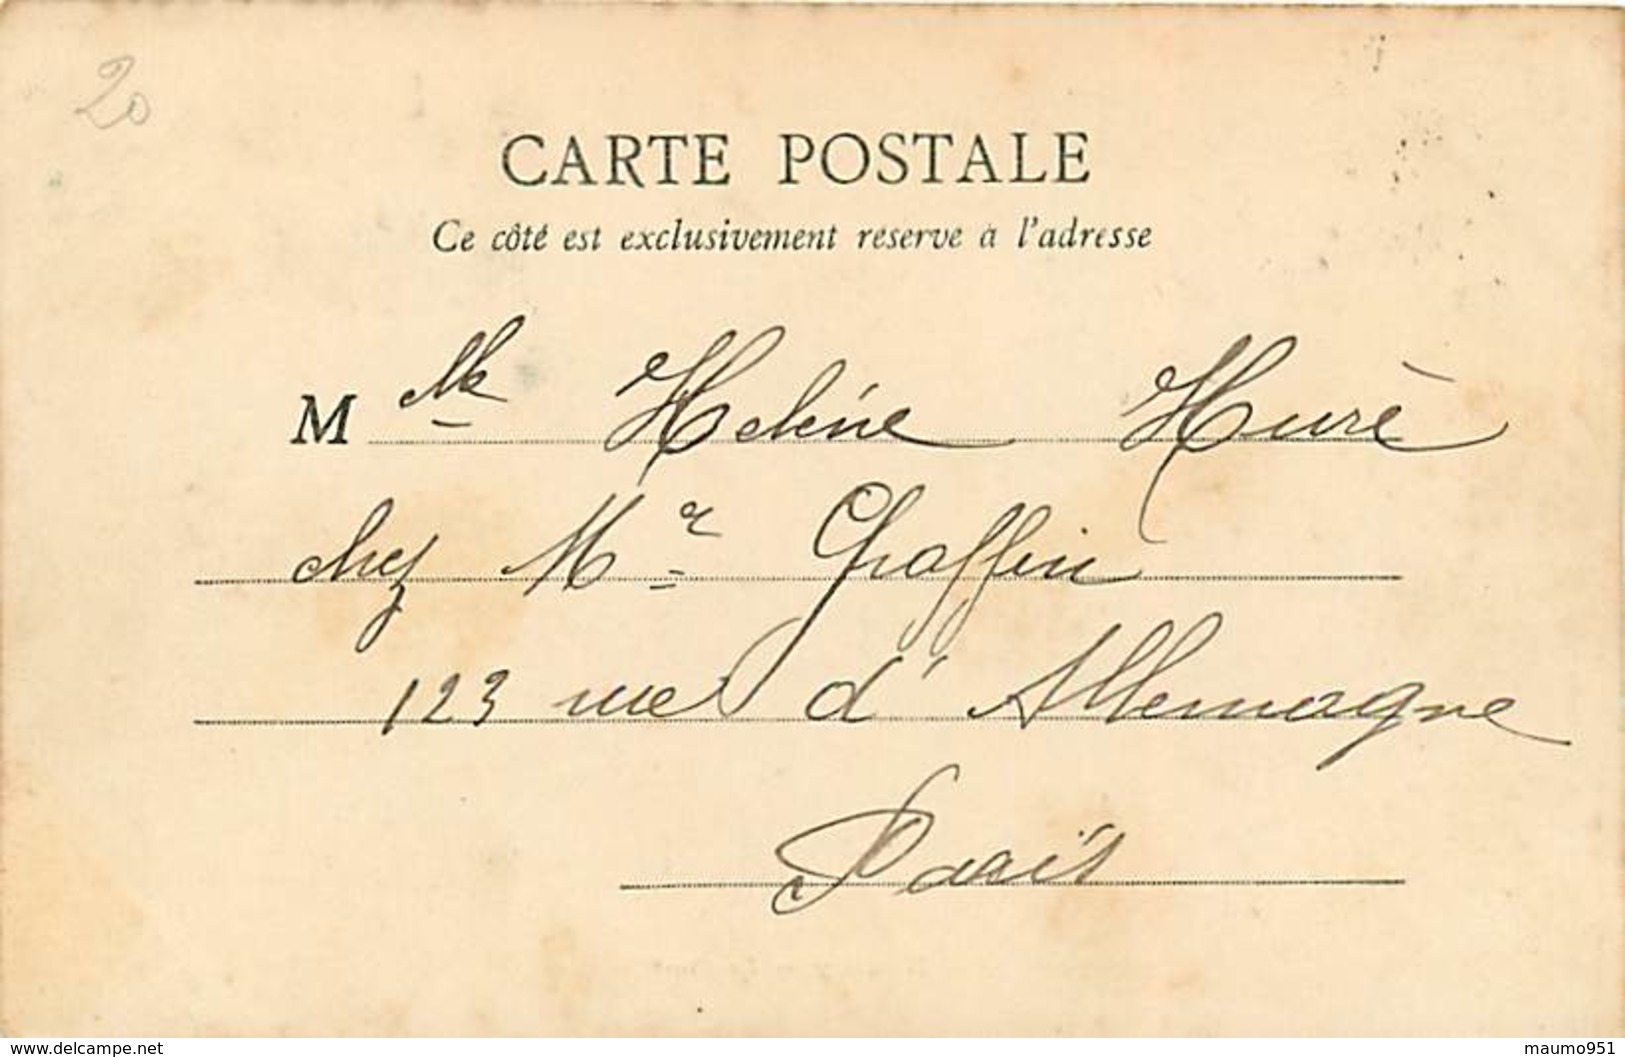 20
CARTE POSTALE
Ce côté est exclusivement reserve à l'adresse
M lle Heléne Huré
chez Mr Chaffin
123 rue d'Allemagne
Paris
www.delcampe.net
maumo951